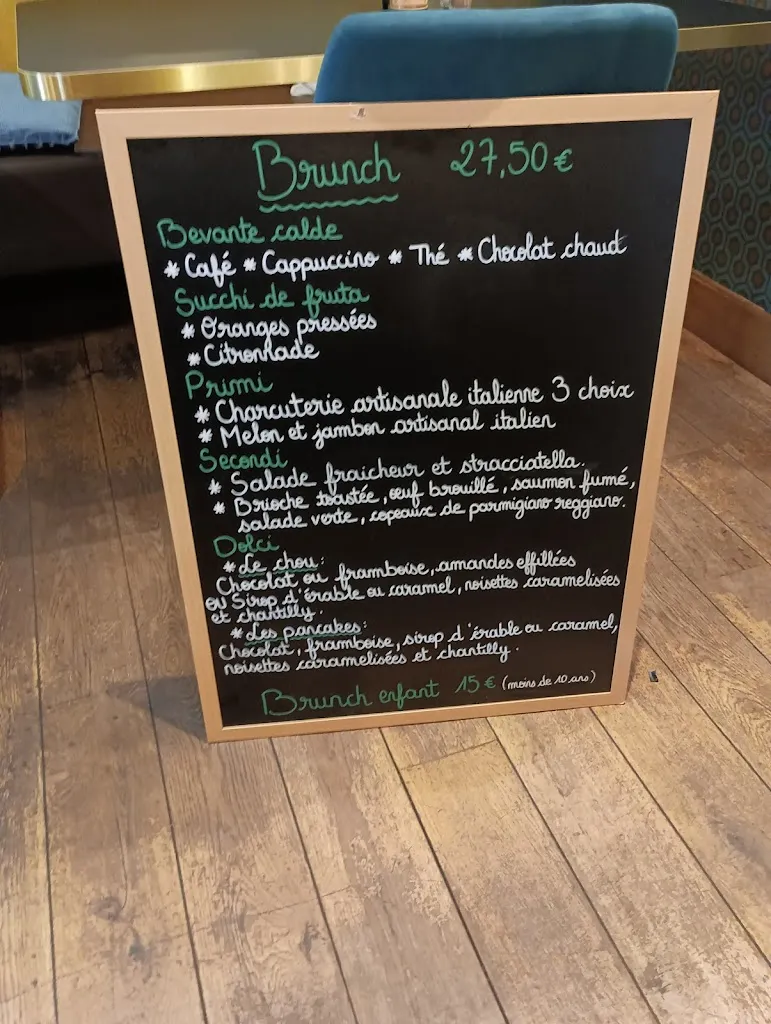 Brunch 27,50 €
Bevante calde
* Café * Cappuccino * Thé * Chocolat chaud
Succhi de fruta
* Oranges pressées
* Citronnade
Primi
* Charcuterie artisanale italienne 3 choix
* Melon et jambon artisanal italien
Secondi
* Salade fraicheur et stracciatella.
* Brioche toastée, œuf brouillé, saumon fumé,
salade verte, copeaux de parmigiano reggiano.
Dolci
* Le chou:
Chocolat ou framboise, amandes effillées
ou Sirop d'érable ou caramel, noisettes caramelisées
et chantilly.
* Les pancakes:
Chocolat, framboise, sirop d'érable ou caramel,
noisettes caramelisées et chantilly.
Brunch enfant 15 € (moins de 10 ans)